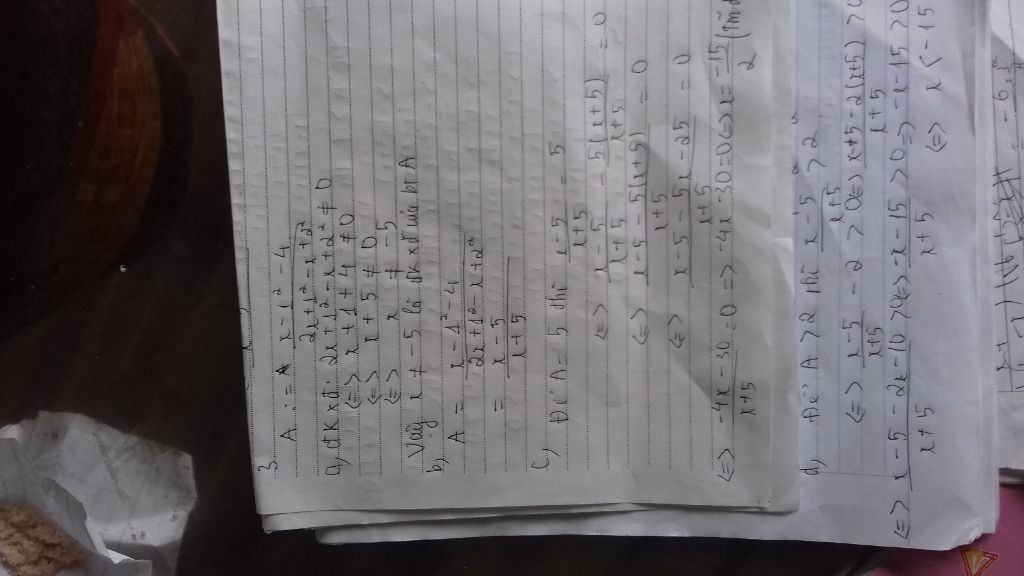 3
A := A x - 1² - 4
2x + 1² - x + 2²
a, đkxđ: 2x + 1² - x + 2² ≠ 0
<=> x + 1 + 4 ≠ 0
<=> x + 5 ≠ 0
<=> x ≠ -5
Vậy x ≠ -5 là đkxđ của bt A
b,
A = x - 1² - 4 / 2x + 1² - x + 2²
= x - 5 / x + 5
c, Để A = 5 thì x - 5 / x + 5 = 5
<=> x - 5 / x + 5 - 5(x + 5) / x + 5 = 0
<=> x - 5 - 5(x + 5) / x + 5 = 0
<=> x - 5 - 5x - 25 / x + 5 = 0
<=> -4x - 30 / x + 5 = 0 => -4x - 30 = 0 <=> x = -15 / 2
d, Để A > 2 thì x - 5 / x + 5 > 2
<=> x - 5 / x + 5 - 2 > 0 <=> x + 5 - 2(x + 5) / x + 5 > 0
<=> x - 5 - 2x - 10 / x + 5 > 0 <=> x - 15 / x + 5 > 0 => -x - 15 > 0
<=> x < -15